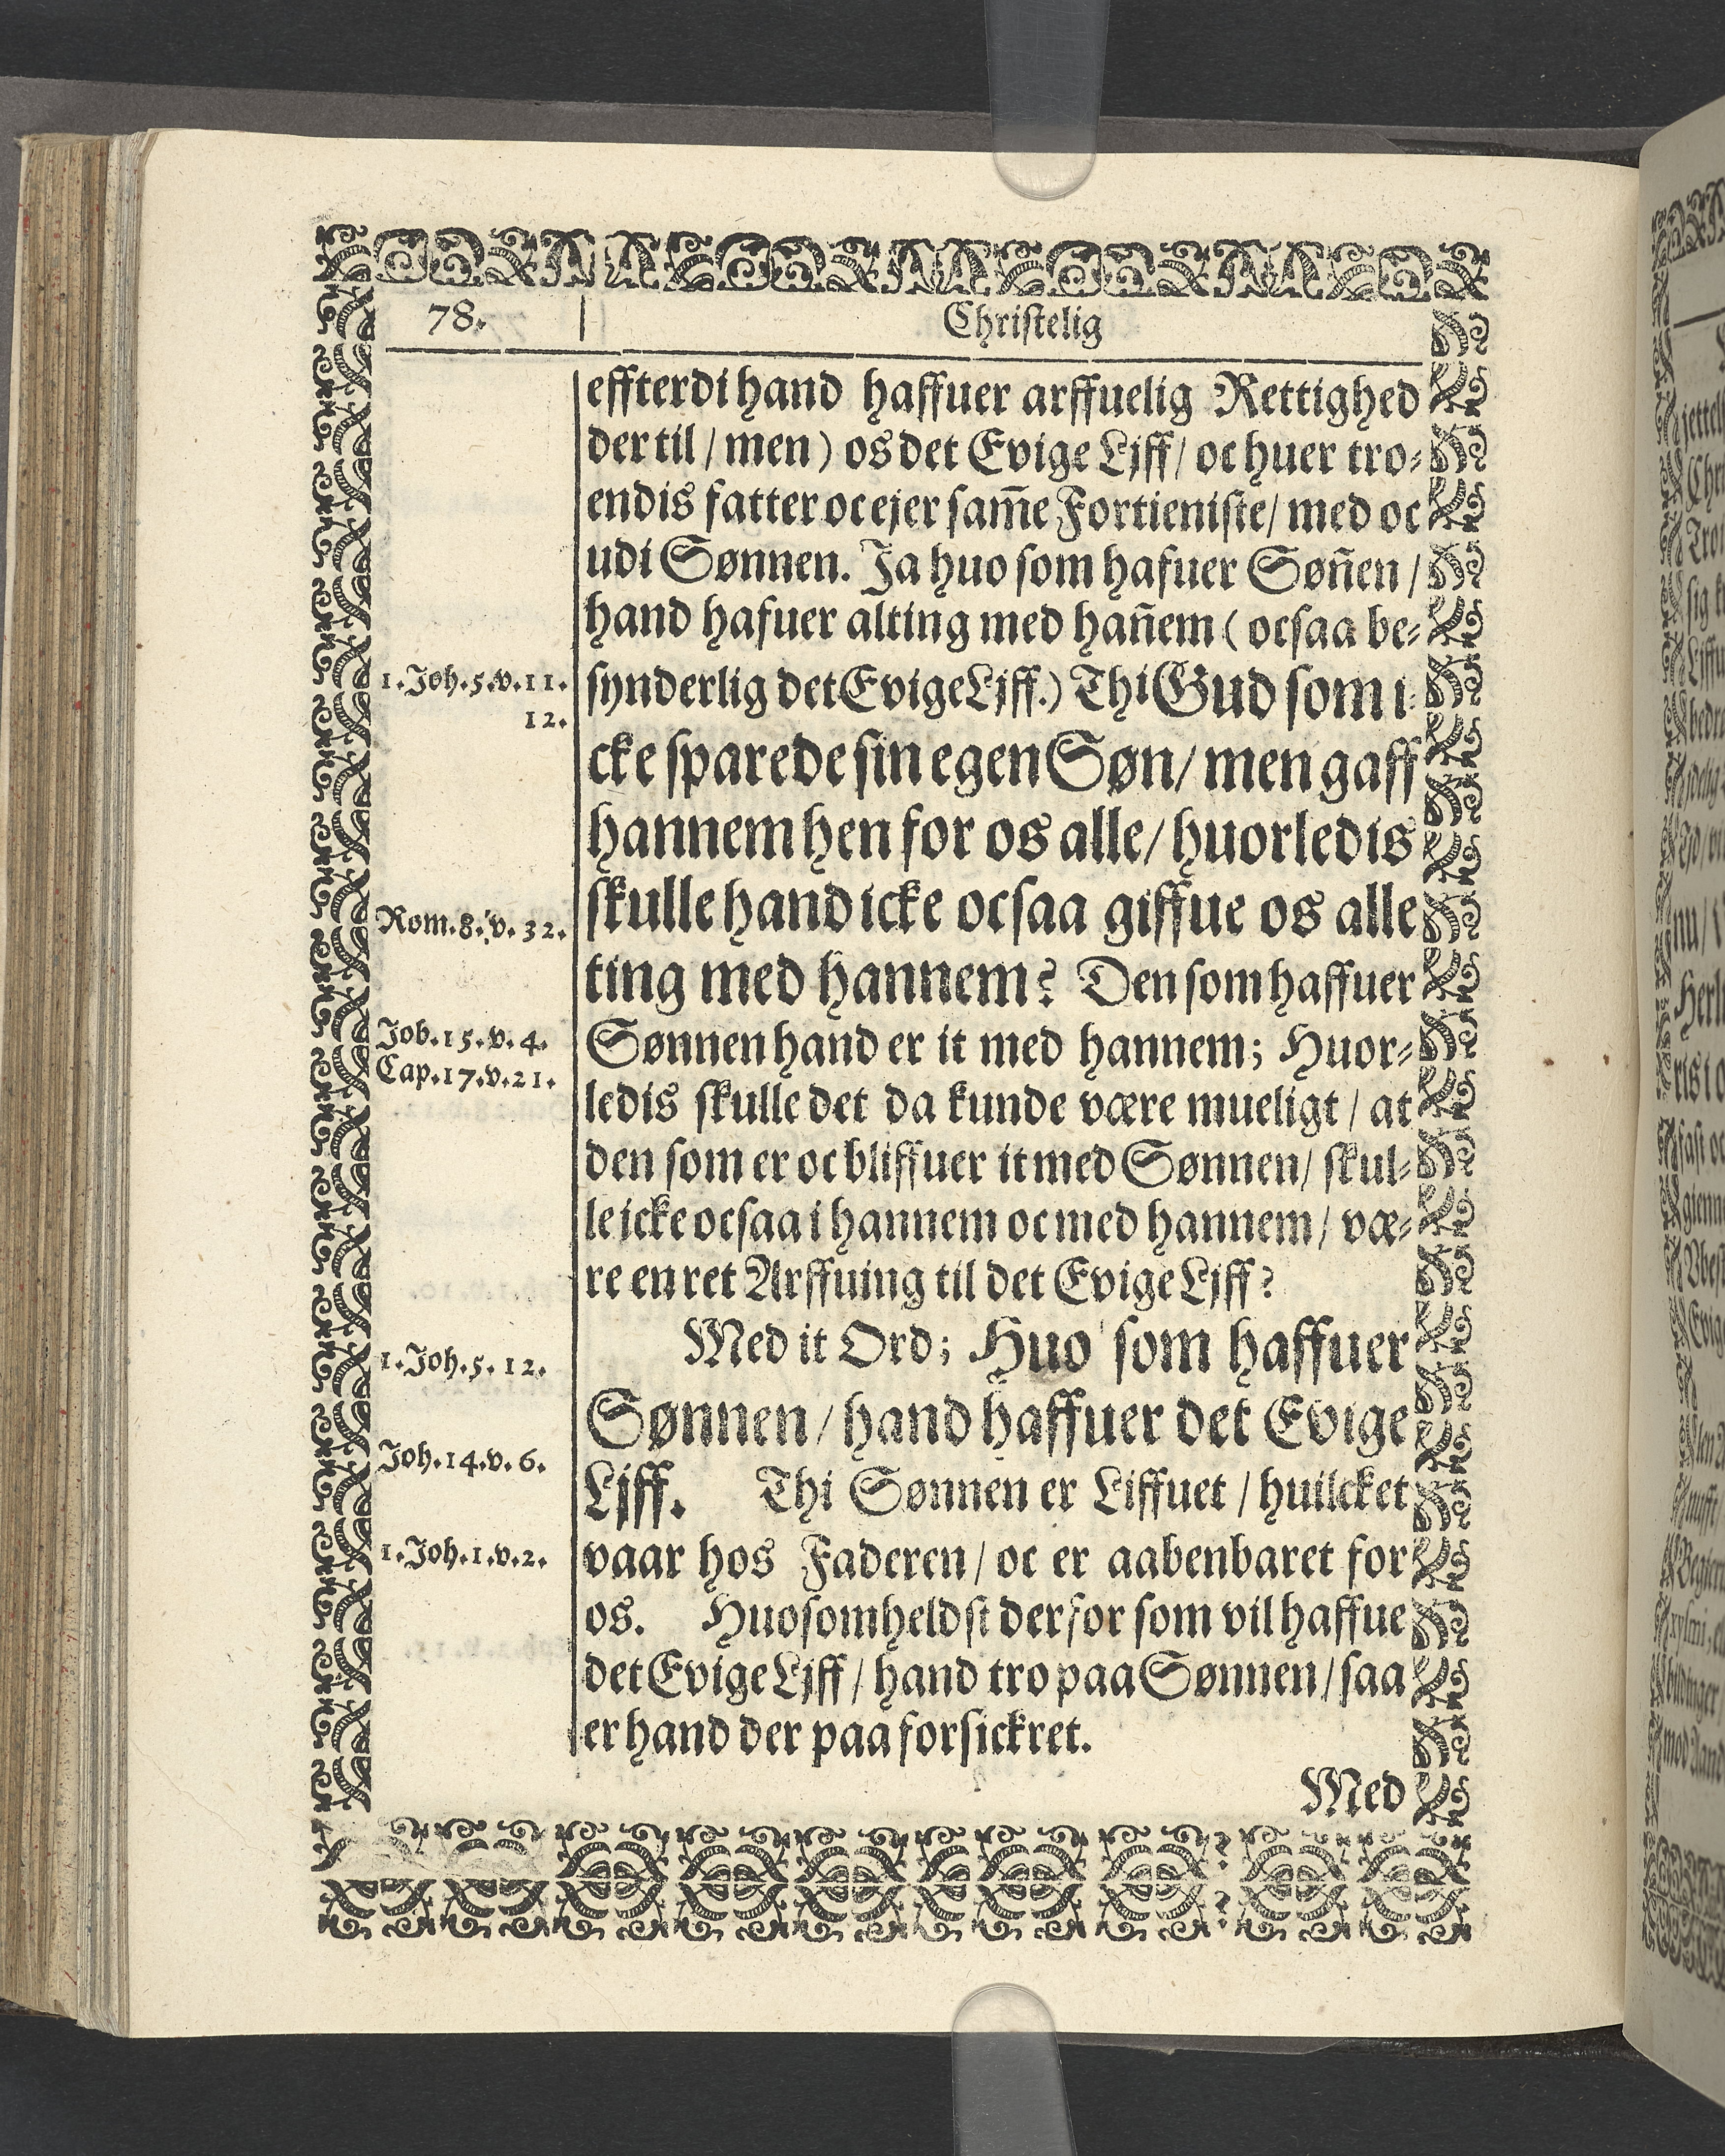 78.
Christelig
effterdi hand haffuer arffuelig Rettighed
der til / men ) os det Evige Ljff / oc huer tro⸗
endis fatter oc ejer sam̄e Fortieniste / med oc
udi Sønnen. Ja huo som hafuer Søn̄en /
hand hafuer alting med han̄em ( ocsaa be⸗
1. Joh. 5. v. 11.
12.
synderlig det Evige Ljff.) Thi Gud som i⸗
cke sparede sin egen Søn / men gaff
hannem hen for os alle / huorledis
Rom. 8. v. 32.
skulle hand icke ocsaa giffue os alle
ting med hannem? Den som haffuer
Job. 15. v. 4.
Cap. 17. v. 21.
Sønnen hand er it med hannem; Huor⸗
ledis skulle det da kunde være mueligt / at
den som er oc bliffuer it med Sønnen / skul⸗
le icke ocsaa i hannem oc med hannem / væ⸗
re en ret Arffuing til det Evige Ljff?
1. Joh. 5. 12.
Med it Ord; Huo som haffuer
Sønnen / hand haffuer det Evige
Joh. 14. v. 6.
Ljff. Thi Sønnen er Liffuet / huilcket
1. Joh. 1. v. 2.
vaar hos Faderen / oc er aabenbaret for
os. Huosomheldst derfor som vil haffue
det Evige Ljff / hand tro paa Sønnen / saa
er hand der paa forsickret.
Med